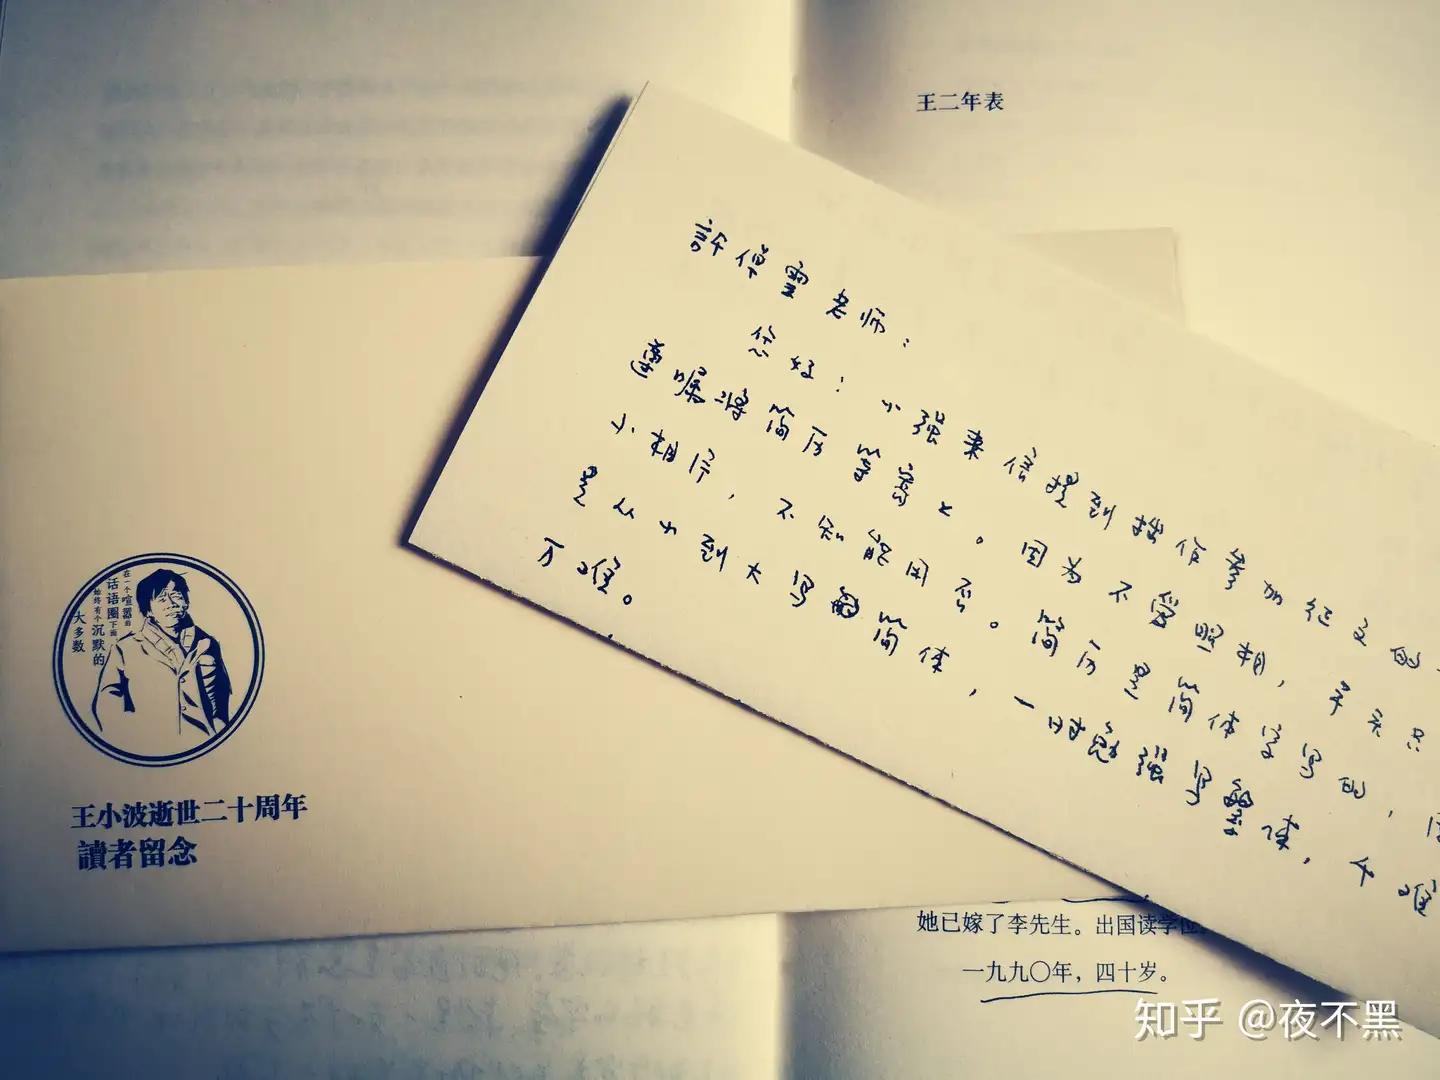 王二年表
許倬雲老师：
您好！小强来信提到拙作参加征文的
遵嘱将简历等寄上。因为不爱照相，手头只
小相片，不知能用否。简历是简体字写的，
是从小到大写的简体，一时勉强写繁体，千难
万难。
在一个喧嚣的
话语圈下面
始终有个沉默的
大多数
王小波逝世二十周年
讀者留念
她已嫁了李先生。出国读学位。
一九九〇年，四十岁。
知乎 @夜不黑